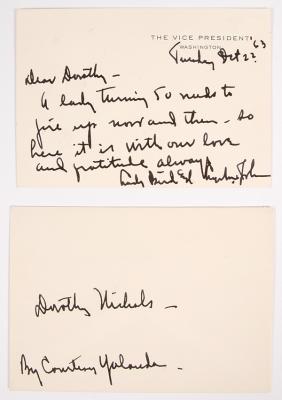 THE VICE PRESIDENT
WASHINGTON
Tuesday Oct 22 '63
Dear Dorothy -
A lady turning 50 needs to
up now and then - so
here it is with our love
and gratitude always
Lady Bird &
Dorothy Nichols -
By Courtesy